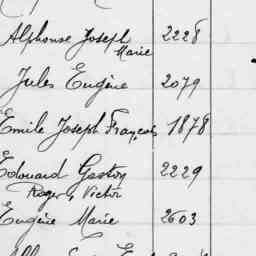 Alphonse Joseph 2228
Marie
Jules Eugène 2079
Emile Joseph François 1878
Edouard Gaston 2229
Roger, Victor
Eugène Marie 2603